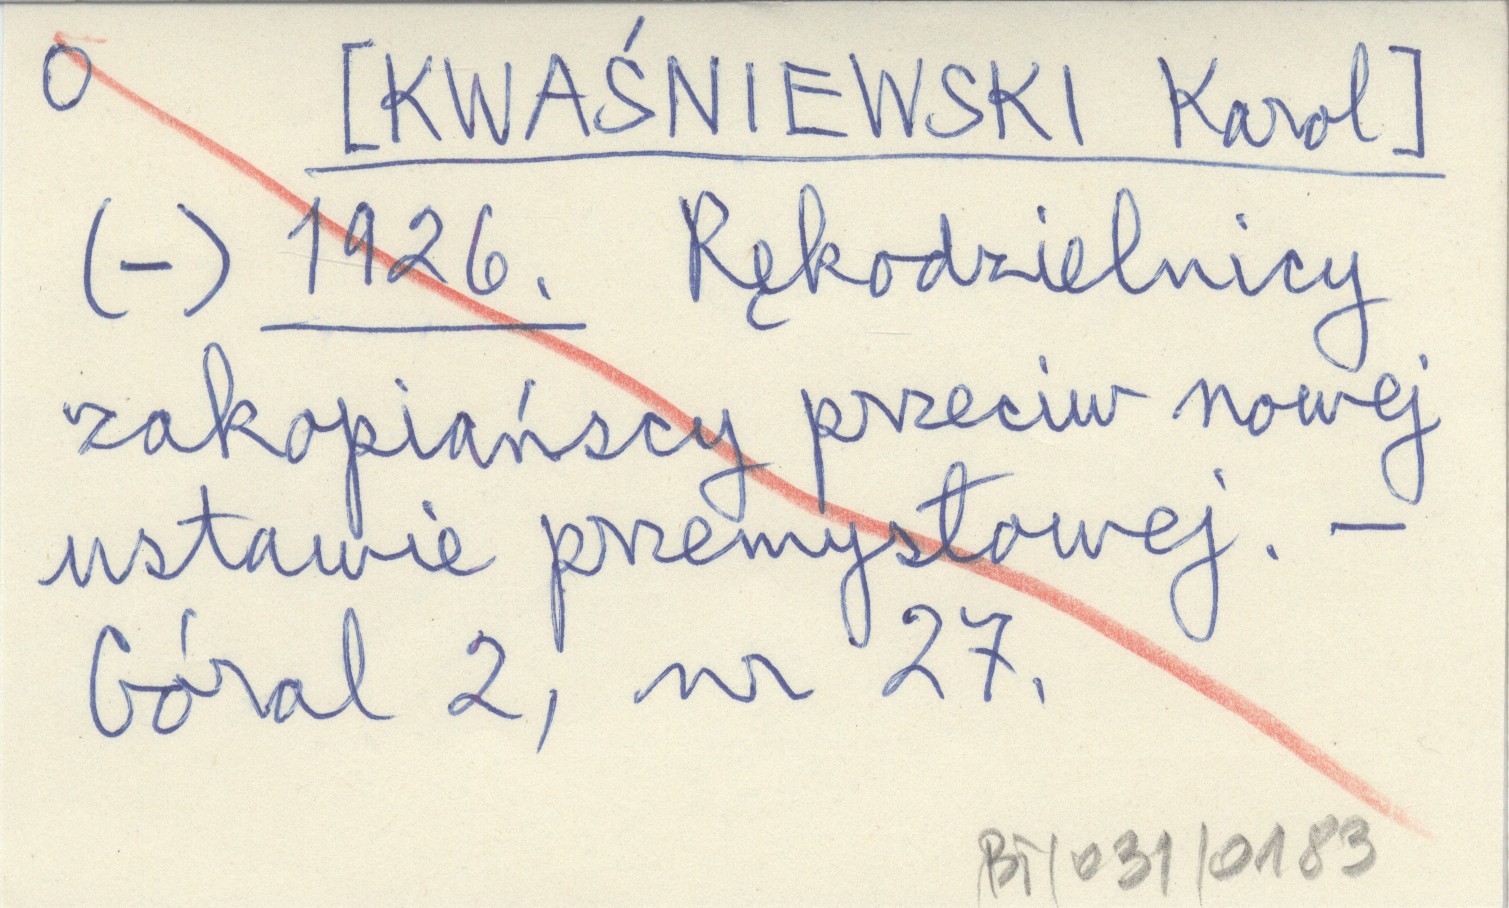 O [KWAŚNIEWSKI Karol]
(-) 1926. Rękodzielnicy
zakopiańscy przeciw nowej
ustawie przemysłowej. –
Góral 2, nr 27.
BT/031/0183